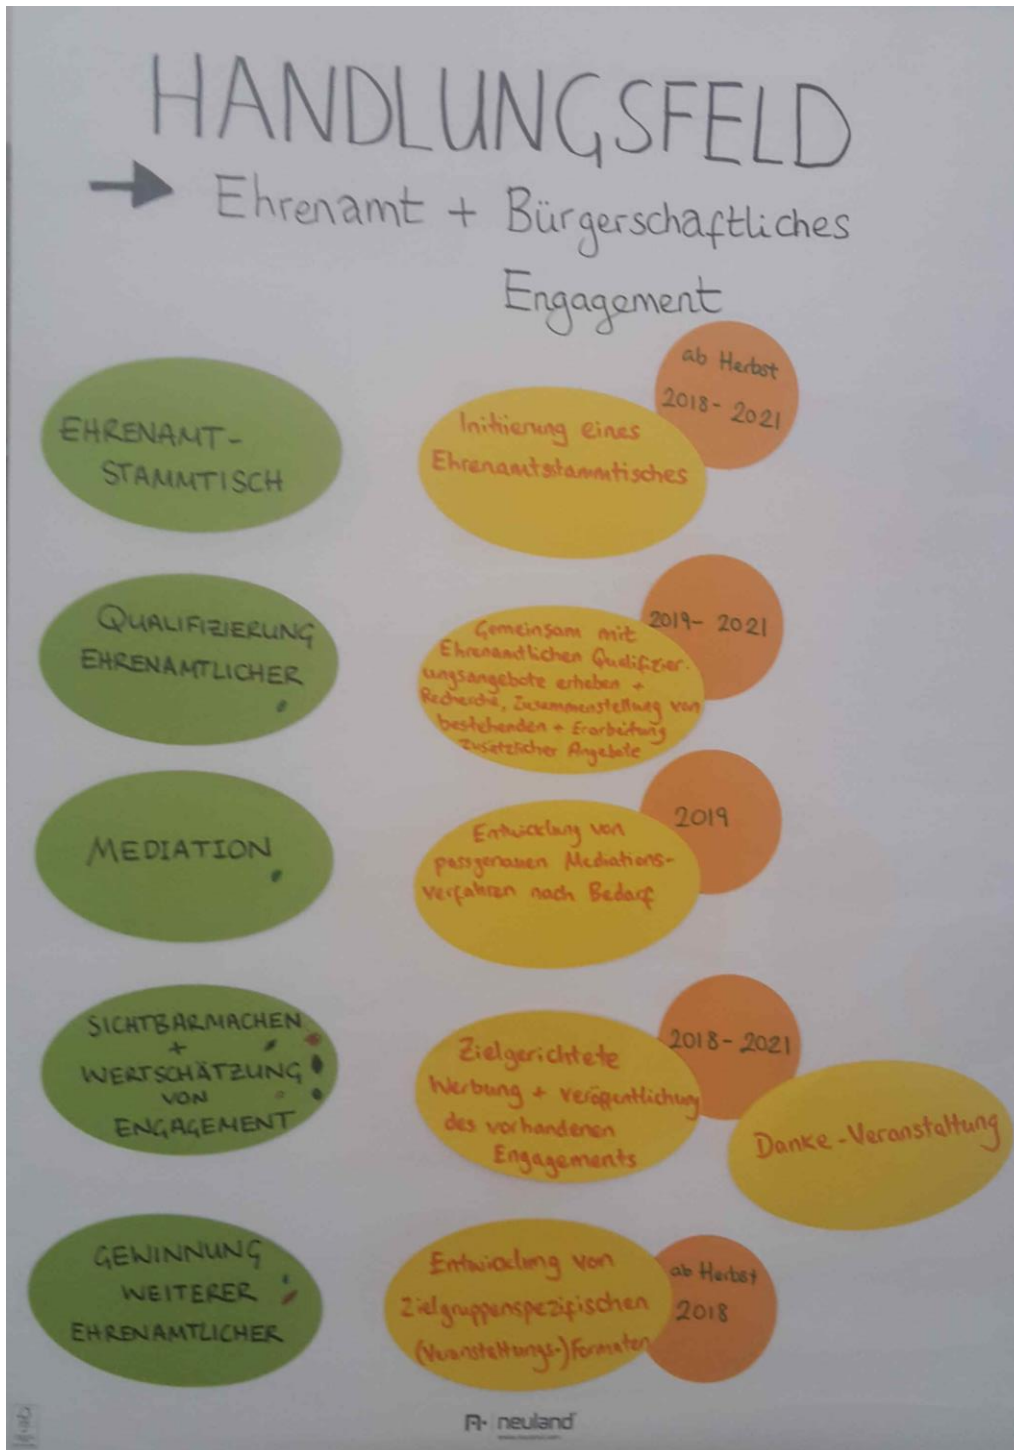 HANDLUNGSFELD
→ Ehrenamt + Bürgerschaftliches
Engagement
EHRENAMT-
STAMMTISCH
Initiierung eines
Ehrenamtsstammtisches
ab Herbst
2018 - 2021
QUALIFIZIERUNG
EHRENAMTLICHER
Gemeinsam mit
Ehrenamtlichen Qualifizier-
ungsangebote erheben +
Recherche, Zusammenstellung von
bestehenden + Erarbeitung
zusätzlicher Angebote
2019 - 2021
MEDIATION
Entwicklung von
passgenauen Mediations-
verfahren nach Bedarf
2019
SICHTBARMACHEN
+
WERTSCHÄTZUNG
VON
ENGAGEMENT
Zielgerichtete
Werbung + Veröffentlichung
des vorhandenen
Engagements
2018 - 2021
Danke-Veranstaltung
GEWINNUNG
WEITERER
EHRENAMTLICHER
Entwicklung von
Zielgruppenspezifischen
(Veranstaltungs-)Formaten
ab Herbst
2018
neuland